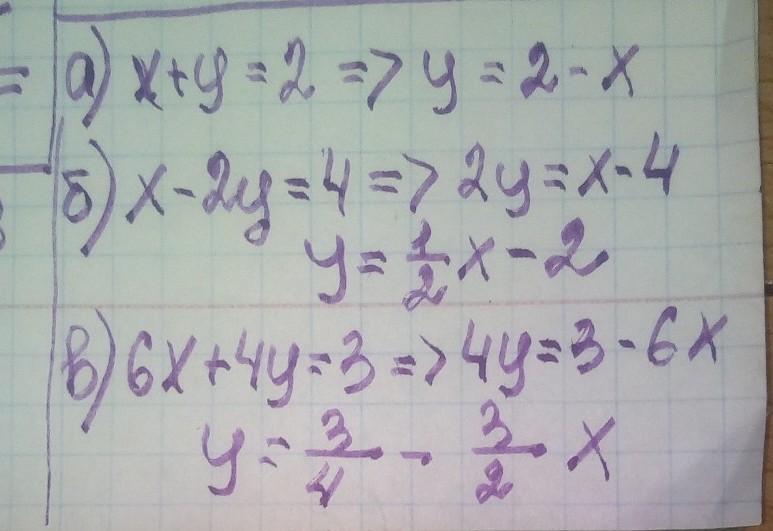 а) x+y=2 => y = 2 - x
б) x - 2y = 4 => 2y = x - 4
y = 1/2 x - 2
в) 6x + 4y = 3 => 4y = 3 - 6x
y = 3/4 - 3/2 x